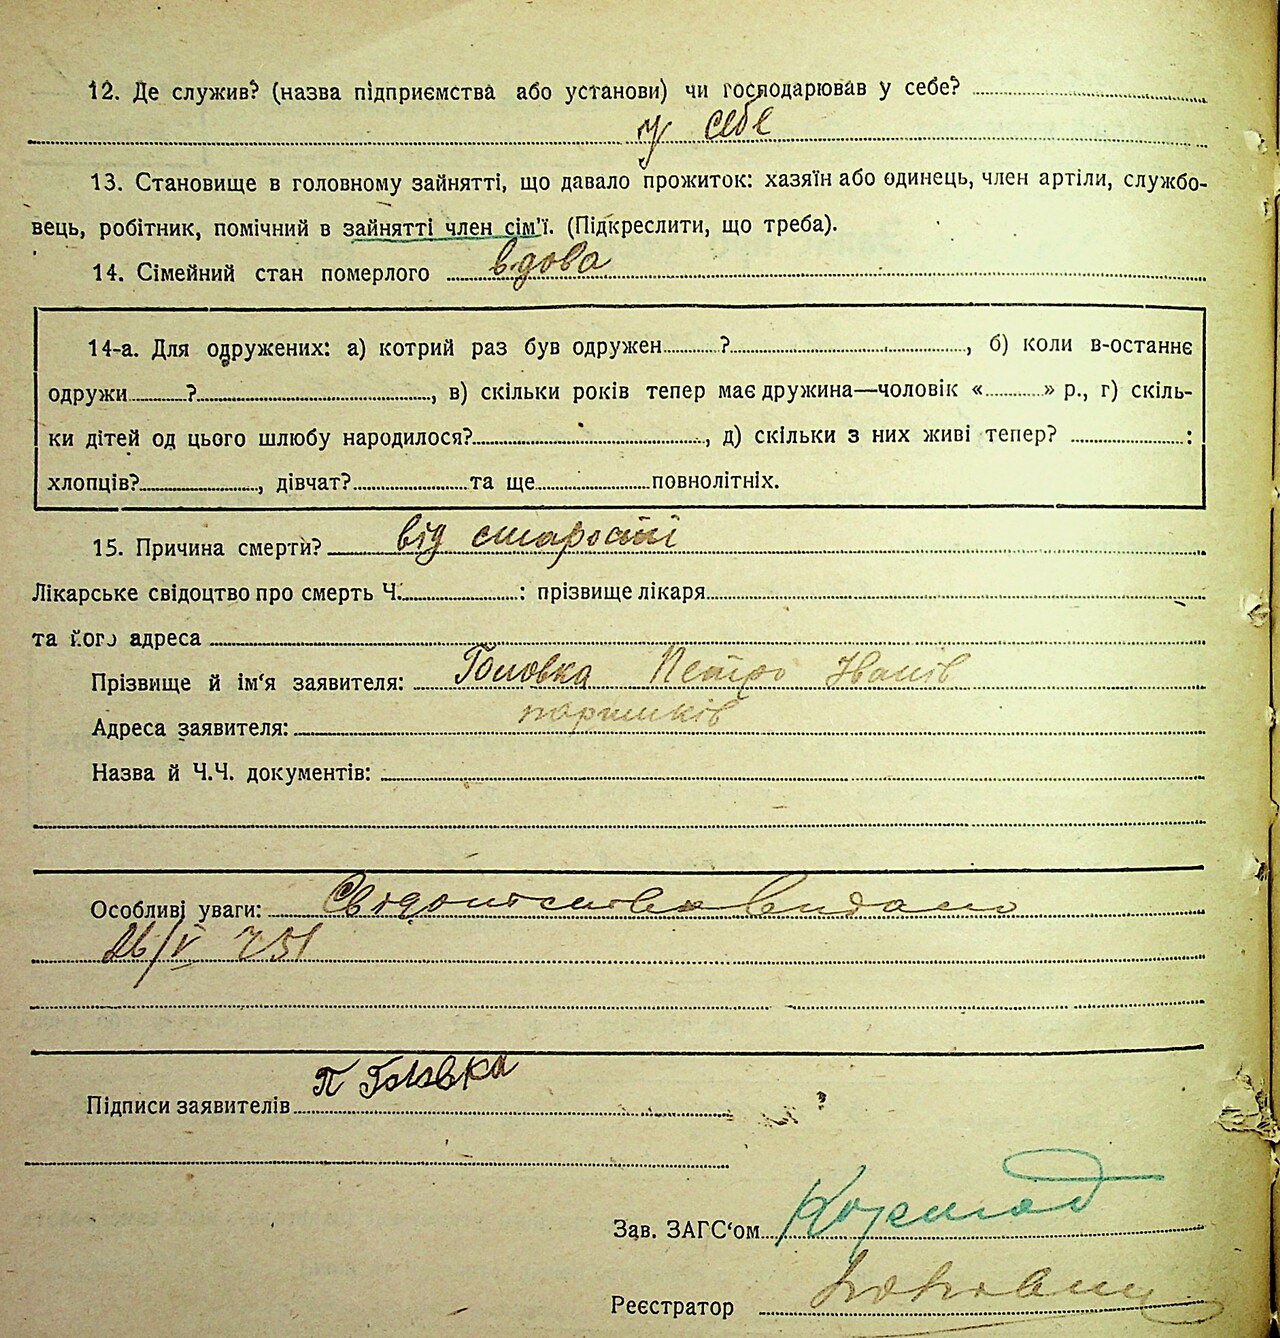 12. Де служив? (назва підприємства або установи) чи господарював у себе?
у себе
13. Становище в головному зайнятті, що давало прожиток: хазяїн або одинець, член артіли, службо-
вець, робітник, помічний в зайнятті член сім'ї. (Підкреслити, що треба).
14. Сімейний стан померлого вдова
14-а. Для одружених: а) котрий раз був одружен ? , б) коли в-останнє
одружи ? , в) скільки років тепер має дружина—чоловік « » р., г) скіль-
ки дітей од цього шлюбу народилося? , д) скільки з них живі тепер? :
хлопців? , дівчат? та ще повнолітніх.
15. Причина смерти? від старости
Лікарське свідоцтво про смерть Ч. : прізвище лікаря
та його адреса
Прізвище й ім'я заявителя: Головка Петро Іванів
Адреса заявителя:
Назва й Ч.Ч. документів:
Особливі уваги: Свідоцтво видано
26/V
Підписи заявителів П Головка
Зав. ЗАГС'ом
Реєстратор